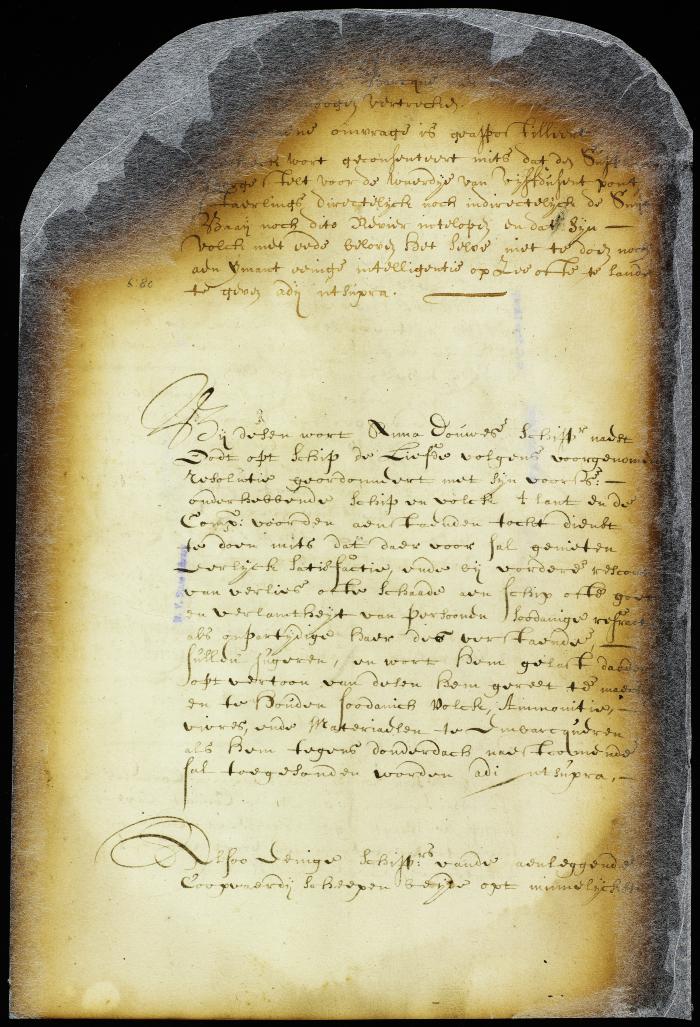 mogen vertrecken.
omvrage is geappostilleert
wort geconsenteert mits dat den Supt
gestelt voor de waerdye van vyftdusent pont
taerlings directelyck noch indirectelyck de Suyt
Baay noch dito Revier intelopen en dat Syn —
volck met eede beloven het selve niet te doen noch
aen ymant eenige intelligentie op Zee ofte te lande
te geven adij utsupra.
Bij desen wort Anna Douwes Schippr naest
Godt opt schip de Liefde volgens voorgenomen
resolutie geordonneert met syn voorss: —
onderhebbende schip en volck t lant en de
Comp: voorden aenstaenden tocht dienst
te doen mits dat daer voor sal genieten
eerlyck satisfactie, ende bij vordere
van verlies ofte schaade aen schip ofte goet
en verlamtheyt van persoonen soodanige
als onpartydige haer des verstaende, —
sullen jugeren, en wort hem gelast
opt vertoon van desen hem gereet te
en te houden soodanich volck, Ammonitie, —
vivres, ende Materiaelen te Embarcqueren
als hem tegens donderdach naestcomende
sal toegesonden worden adi utsupra, —
Alsoo Eenige Schipprs vande aenleggende
Coopvaerdij scheepen beyde opt minnelyckste